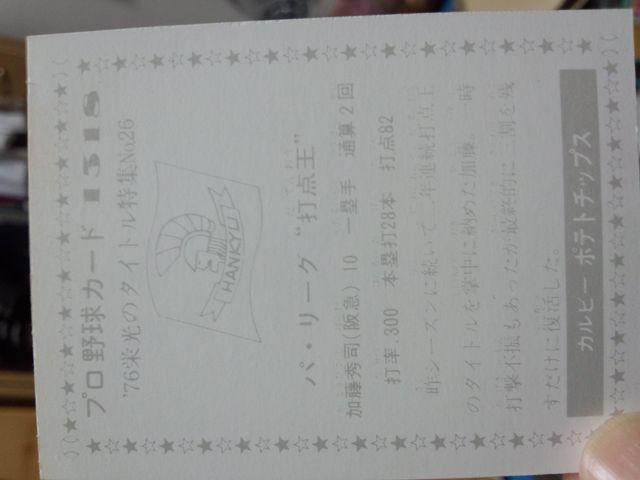 プロ野球カード 1318
'76栄光のタイトル特集No.26
HANKYU
パ・リーグ “打点王”
加藤秀司(阪急) 10 一塁手 通算2回
打率.300 本塁打28本 打点82
昨シーズンに続いて二年連続打点王
のタイトルを掌中に納めた加藤。一時
打撃不振もあったが最終的に三割を残
すだけに復活した。
カルビー ポテトチップス